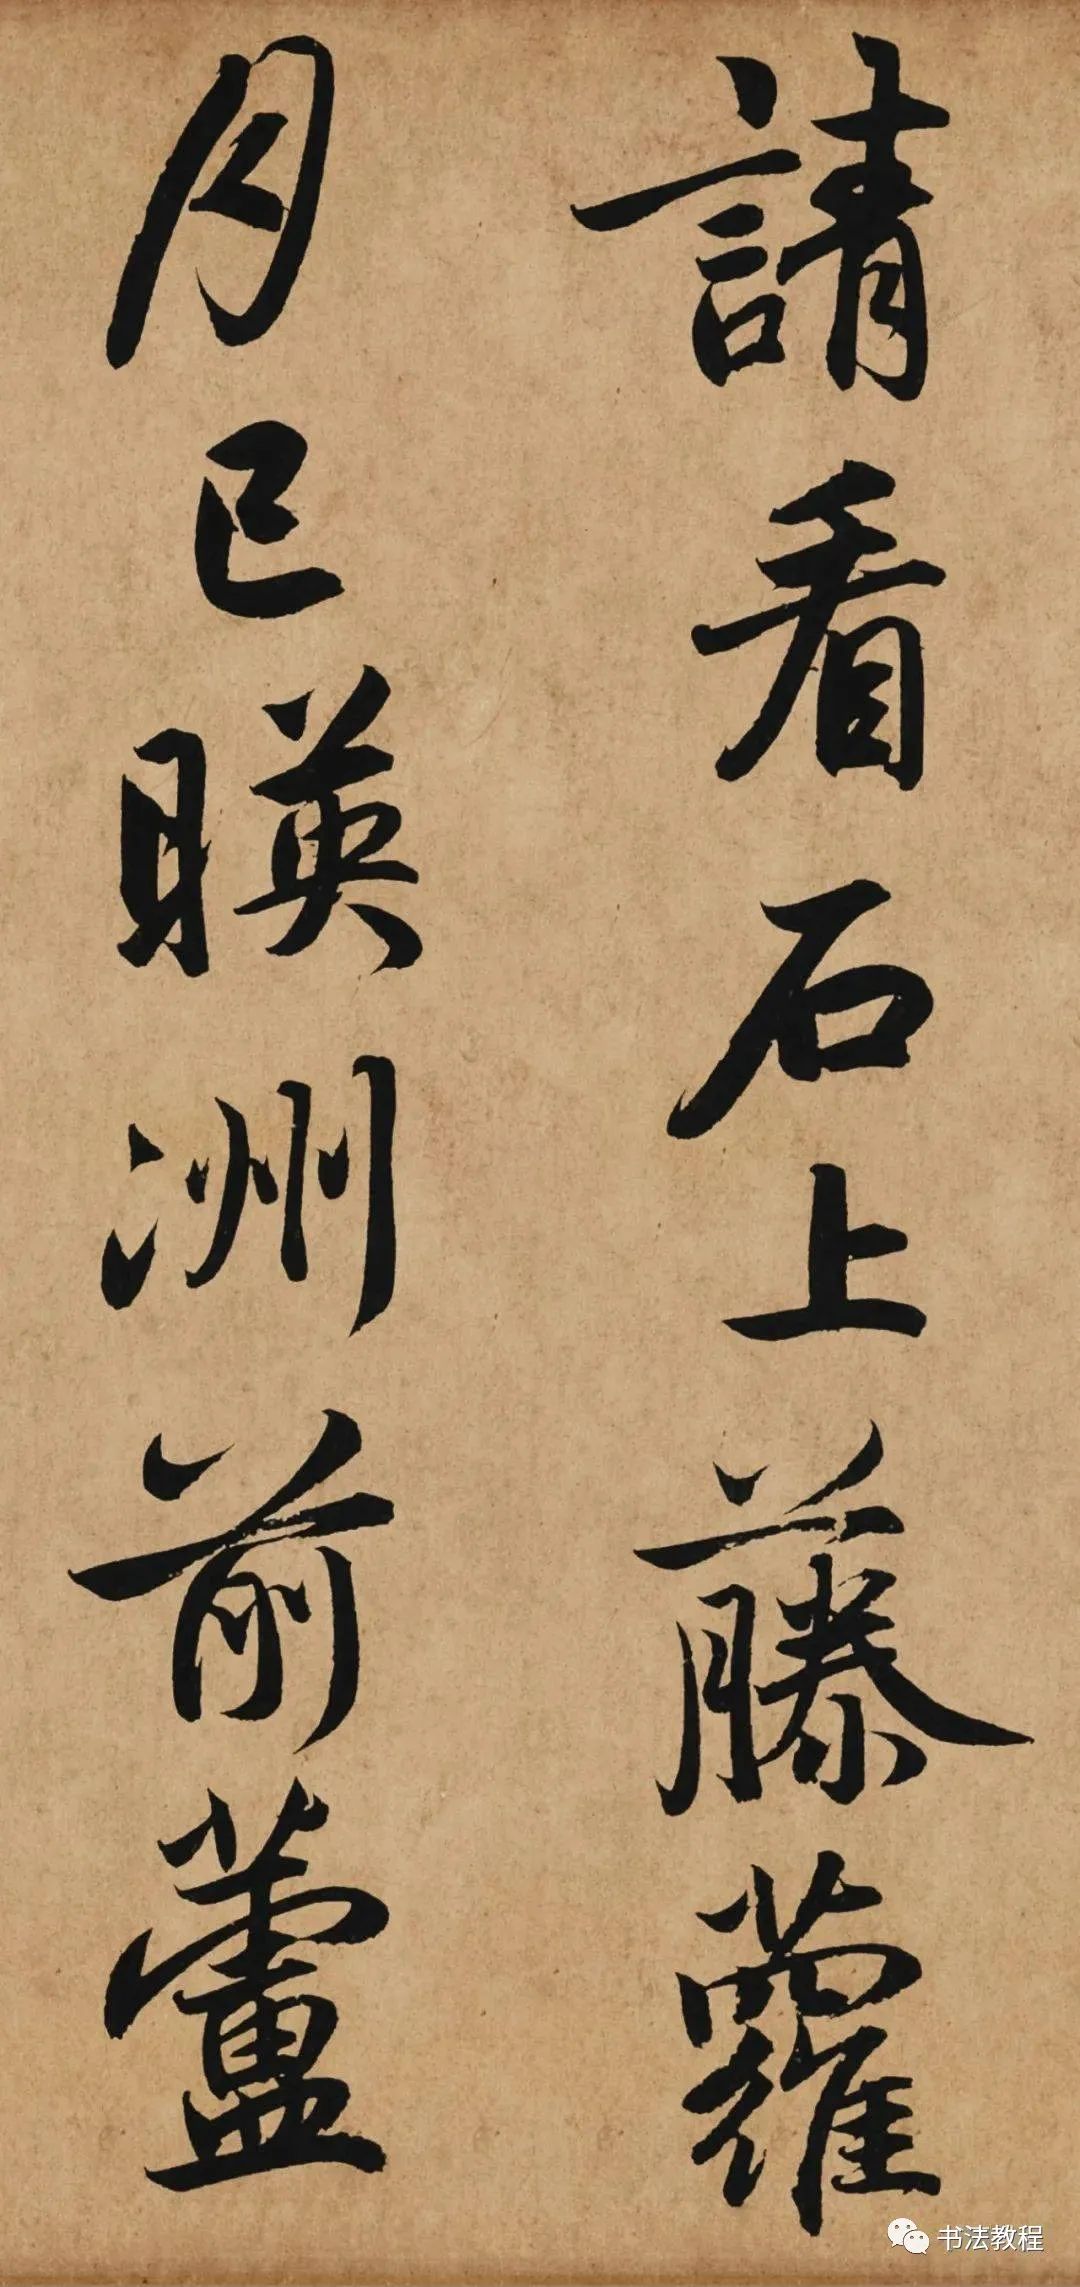 請看石上藤蘿
月已暎洲前蘆
书法教程